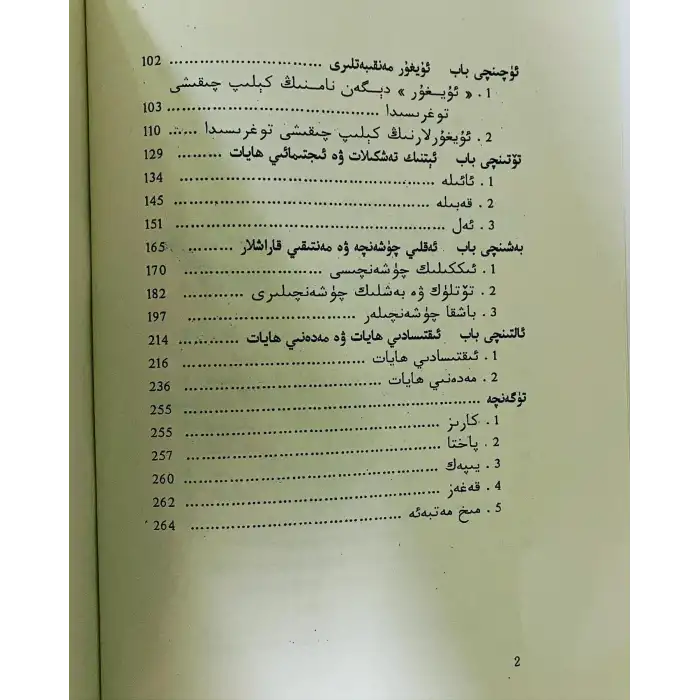 ئۈچىنچى باب ئۇيغۇر مەنقىبەتلىرى ............................ 102
1 . « ئۇيـغۇر » دېـگەن نامـنىڭ كېلىپ چىقىشى
توغرىسىدا ........................................ 103
2 . ئۇيغۇرلارنىڭ كېلىپ چىقىشى توغرىسىدا ...... 110
تۆتىنچى باب ئېتنىك تەشكىلات ۋە ئىجتىمائىي ھايات ......... 129
1 . ئائىلە ................................................ 134
2 . قەبىلە ................................................ 145
3 . ئەل .................................................. 151
بەشىنچى باب ئەقلىي چۈشەنچە ۋە مەنتىقىي قاراشلار ......... 165
1 . ئىككىلىك چۈشەنچىسى .......................... 170
2 . تۆتلۈك ۋە بەشلىك چۈشەنچىلىرى ............ 182
3 . باشقا چۈشەنچىلەر ................................ 197
ئالتىنچى باب ئىقتىسادىي ھايات ۋە مەدەنىي ھايات ............ 214
1 . ئىقتىسادىي ھايات ................................ 216
2 . مەدەنىي ھايات .................................... 236
تۈگەنچە .................................................... 255
1 . كارىز ................................................ 255
2 . پاختا ................................................ 257
3 . يىپەك ................................................ 260
4 . قەغەز ................................................ 262
5 . مىخ مەتبەئە ........................................ 264
2